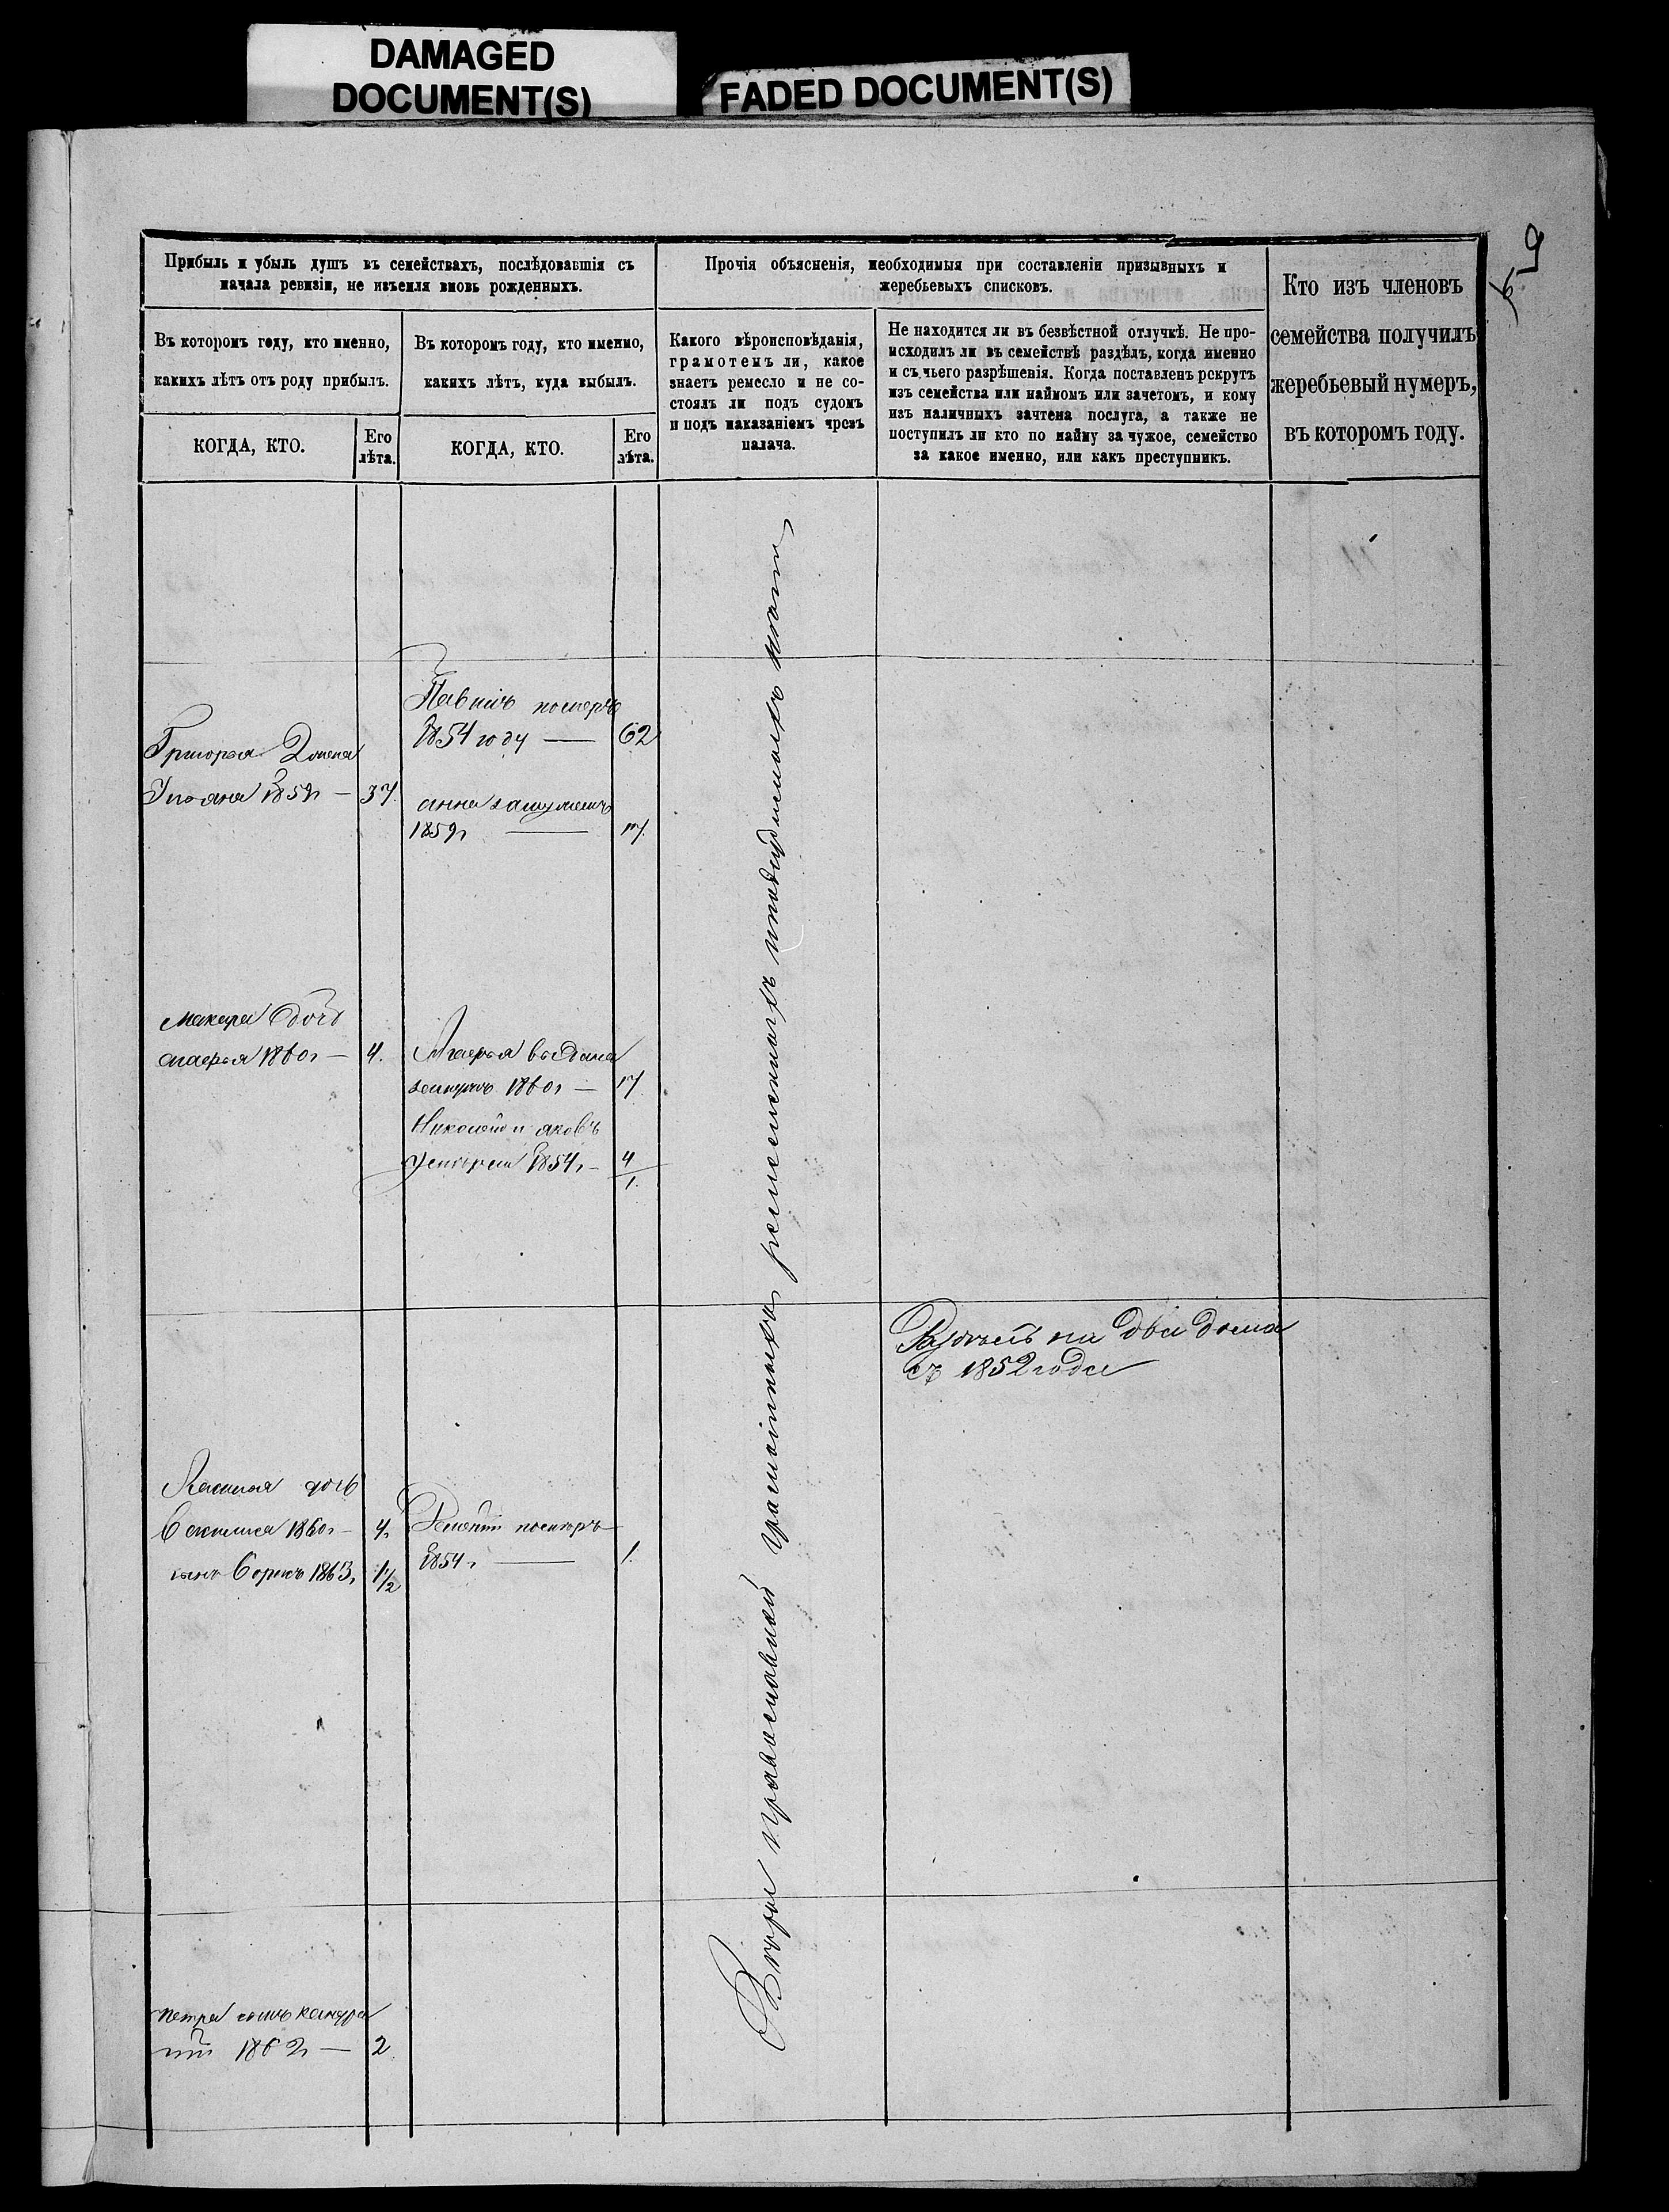 DAMAGED
DOCUMENT(S)
FADED DOCUMENT(S)
Прибыль и убыль душъ въ семействахъ, послѣдовавшія съ
начала ревизіи, не изъемля вновь рожденныхъ.
Въ которомъ году, кто именно,
какихъ лѣтъ отъ роду прибылъ.
КОГДА, КТО.
Его
лѣта.
Въ которомъ году, кто именно,
какихъ лѣтъ, куда выбылъ.
КОГДА, КТО.
Его
лѣта.
Прочія объясненія, необходимыя при составленіи призывныхъ и
жеребьевыхъ списковъ.
Какого вѣроисповѣданія,
грамотенъ ли, какое
знаетъ ремесло и не со-
стоялъ ли подъ судомъ
и подъ наказаніемъ чрезъ
палача.
Не находится ли въ безвѣстной отлучкѣ. Не про-
исходилъ ли въ семействѣ раздѣлъ, когда именно
и съ чьего разрѣшенія. Когда поставленъ рекрутъ
изъ семейства или наймомъ или зачетомъ, и кому
изъ наличныхъ зачтена послуга, а также не
поступилъ ли кто по найму за чужое, семейство
за какое именно, или какъ преступникъ.
Кто изъ членовъ
семейства получилъ
жеребьевый нумеръ,
въ которомъ году.
Григорья Жена
1859г — 37.
померъ
1854 году — 62
анна замужемъ
1859г — 17.
макара дочь
марья 1860г — 4.
Марья выдана
замужъ 1860г — 17
Николай и яковъ
1854г — 4
1.
дочь
1860г — 4.
сынъ 1863г 1/2
померъ
1854г — 1.
петра сынъ
1862г — 2
Вѣры православной
Раздѣлъ на два дома
съ 1852 года